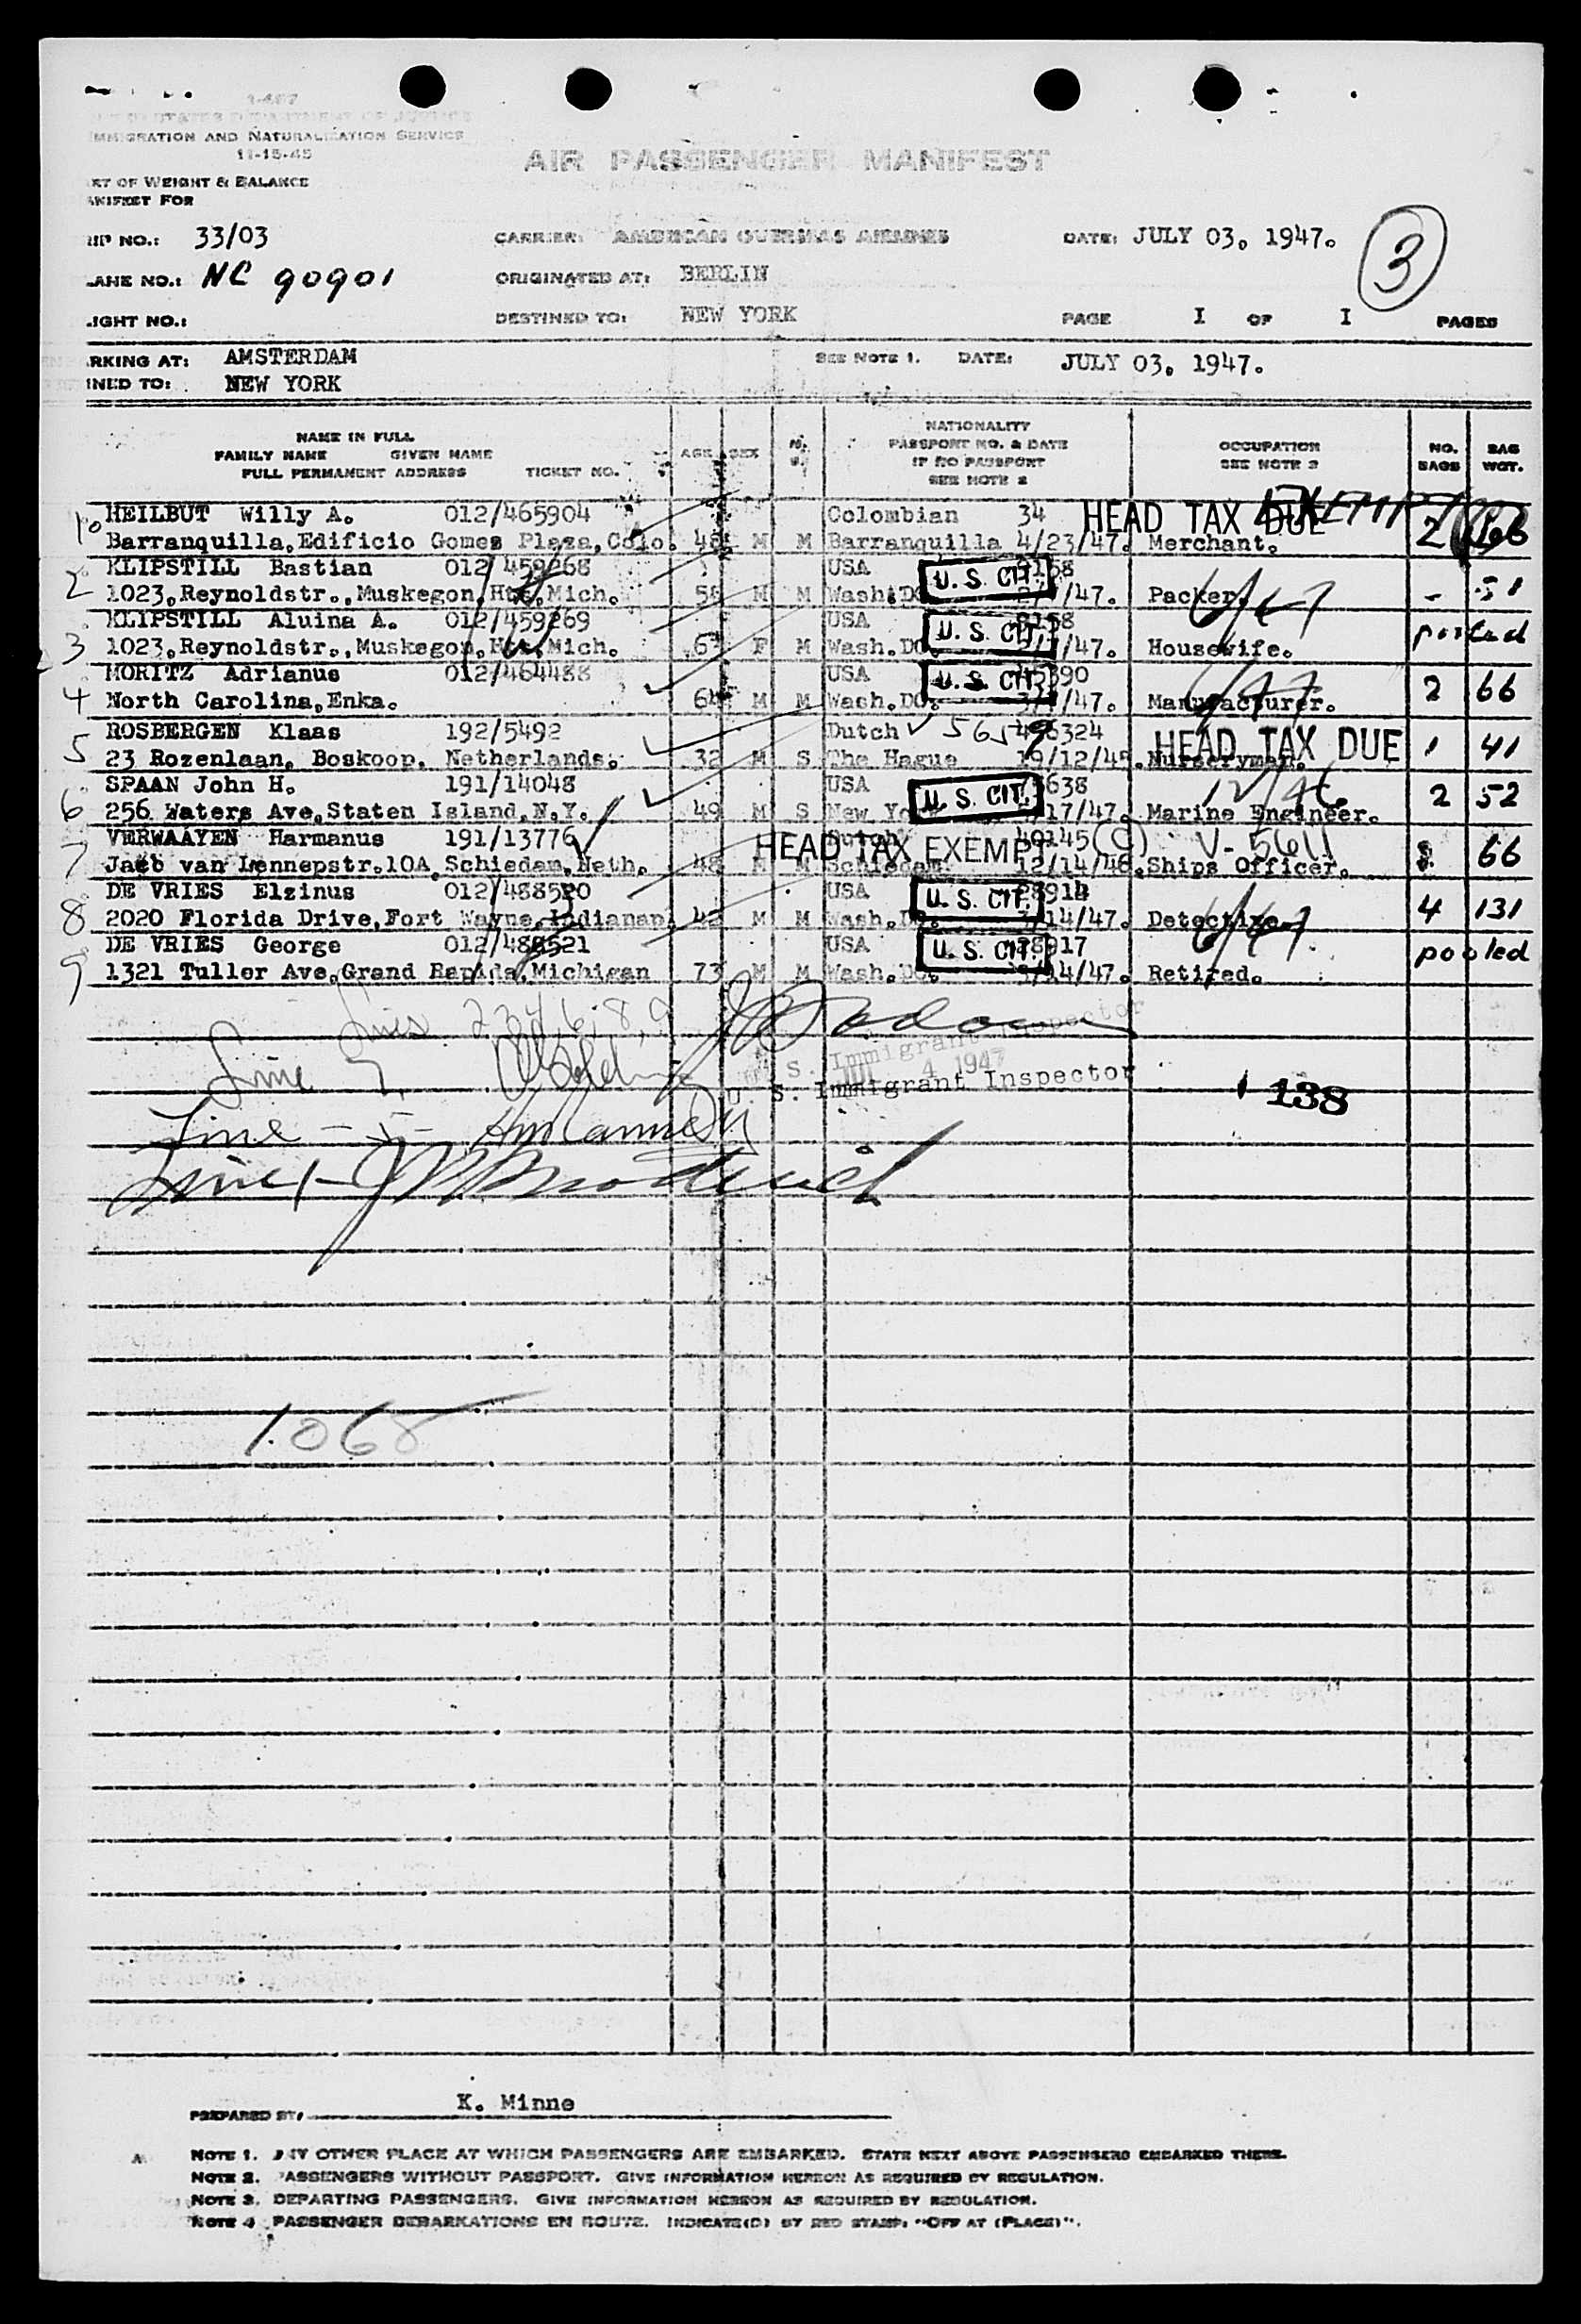 1-467
IMMIGRATION AND NATURALIZATION SERVICE
11-15-45
AIR PASSENGER MANIFEST
RT OF WEIGHT & BALANCE
ANIFEST FOR
RIP NO.: 33/03 CARRIER: AMERICAN OVERSEAS AIRLINES DATE: JULY 03. 1947. 3
LANE NO.: NC 90901 ORIGINATED AT: BERLIN
LIGHT NO.: DESTINED TO: NEW YORK PAGE I OF I PAGES
RKING AT: AMSTERDAM SEE NOTE 1. DATE: JULY 03. 1947.
INED TO: NEW YORK
NAME IN FULL
FAMILY NAME GIVEN NAME
FULL PERMANENT ADDRESS TICKET NO.
AGE SEX M. S.
NATIONALITY
PASSPORT NO. & DATE
IF NO PASSPORT
SEE NOTE 2
OCCUPATION
SEE NOTE 3
NO. BAGS
BAG WGT.
1. HEILBUT Willy A. 012/465904 Colombian 34 HEAD TAX DUE EXEMPT
Barranquilla.Edificio Gomes Plaza,Colo. 48 M M Barranquilla 4/23/47. Merchant. 2
2 KLIPSTILL Bastian 012/459268 USA U. S. CIT.
1023.Reynoldstr.,Muskegon,Hts.Mich. 58 M M Wash.DC /47. Packer. - 51
3 KLIPSTILL Aluina A. 012/459269 USA U. S. CIT. pooled
1023.Reynoldstr.,Muskegon,Hts.Mich. F M Wash.DC. /47. Housewife.
4 MORITZ Adrianus 012/464488 USA U. S. CIT. 2 66
North Carolina,Enka. 64 M M Wash.DC. /47. Manufacturer.
5 ROSBERGEN Klaas 192/5492 Dutch HEAD TAX DUE 1 41
23 Rozenlaan. Boskoop. Netherlands. 32 M S The Hague Nurseryman.
6 SPAAN John H. 191/14048 USA U. S. CIT. 12/46. 2 52
256 Waters Ave,Staten Island,N.Y. 49 M S New Yo 17/47. Marine Engineer.
7 VERWAAYEN Harmanus 191/13776 Dutch 40145 HEAD TAX EXEMPT V-5611 66
Jacb van Lennepstr.10A,Schiedam,Neth. 48 M M Schiedam 12/14/46. Ships Officer.
8 DE VRIES Elzinus 012/488520 USA U. S. CIT. 4 131
2020 Florida Drive,Fort Wayne,Indianap. 42 M M Wash.DC. 14/47. Detective.
9 DE VRIES George 012/488521 USA U. S. CIT. pooled
1321 Tuller Ave.Grand Rapids.Michigan 73 M M Wash.DC. 14/47. Retired.
Lines 2 3 4, 6, 8, 9
U. S. Immigrant Inspector
Line 7,
4 1947
U. S. Immigrant Inspector
138
Line - 5 -
Line 1 -
1068
PREPARED BY: K. Minne
NOTE 1. ANY OTHER PLACE AT WHICH PASSENGERS ARE EMBARKED. STATE NEXT ABOVE PASSENGERS EMBARKED THERE.
NOTE 2. PASSENGERS WITHOUT PASSPORT. GIVE INFORMATION HEREON AS REQUIRED BY REGULATION.
NOTE 3. DEPARTING PASSENGERS. GIVE INFORMATION HEREON AS REQUIRED BY REGULATION.
NOTE 4 PASSENGER DEBARKATIONS EN ROUTE. INDICATE(D) BY RED STAMP: "OFF AT (PLACE)".